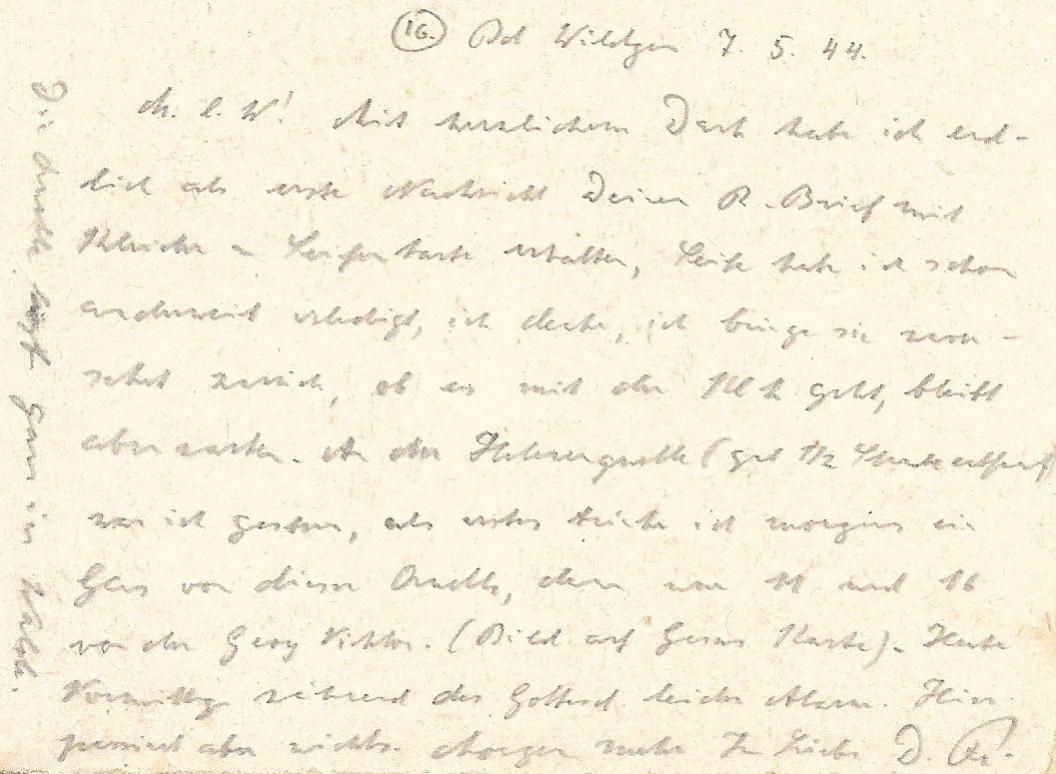 (16.) Bad Wildgen 7. 5. 44.
M. l. W! Mit herzlichem Dank habe ich end-
lich als erste Nachricht Deinen R.-Brief mit
Kleider u Seifenkarte erhalten, Seife habe ich schon
anderweit erledigt, ich denke, ich bringe sie
zurück, ob es mit der Klk geht, bleibt
abzuwarten. An der Helenenquelle (gut 1/2 Stunde
war ich gestern, als erstes trinke ich morgens ein
Glas von dieser Quelle, dann um 11 und 16
von der Georg Viktor. (Bild auf Karte). Heute
Vormittag während des Gottesd leider Alarm. Hier
passiert aber nichts. Morgen mehr In Liebe D.
Die Quelle liegt ganz im Walde.